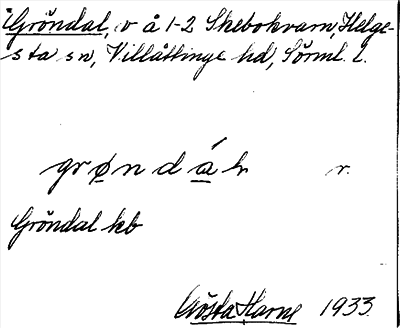 Gröndal, v å 1-2 Skebokvarn, Helge-
sta sn, Villåttinge hd, Sörml. l.
grøndáł v.
Gröndal kb
Gösta Harne 1933.